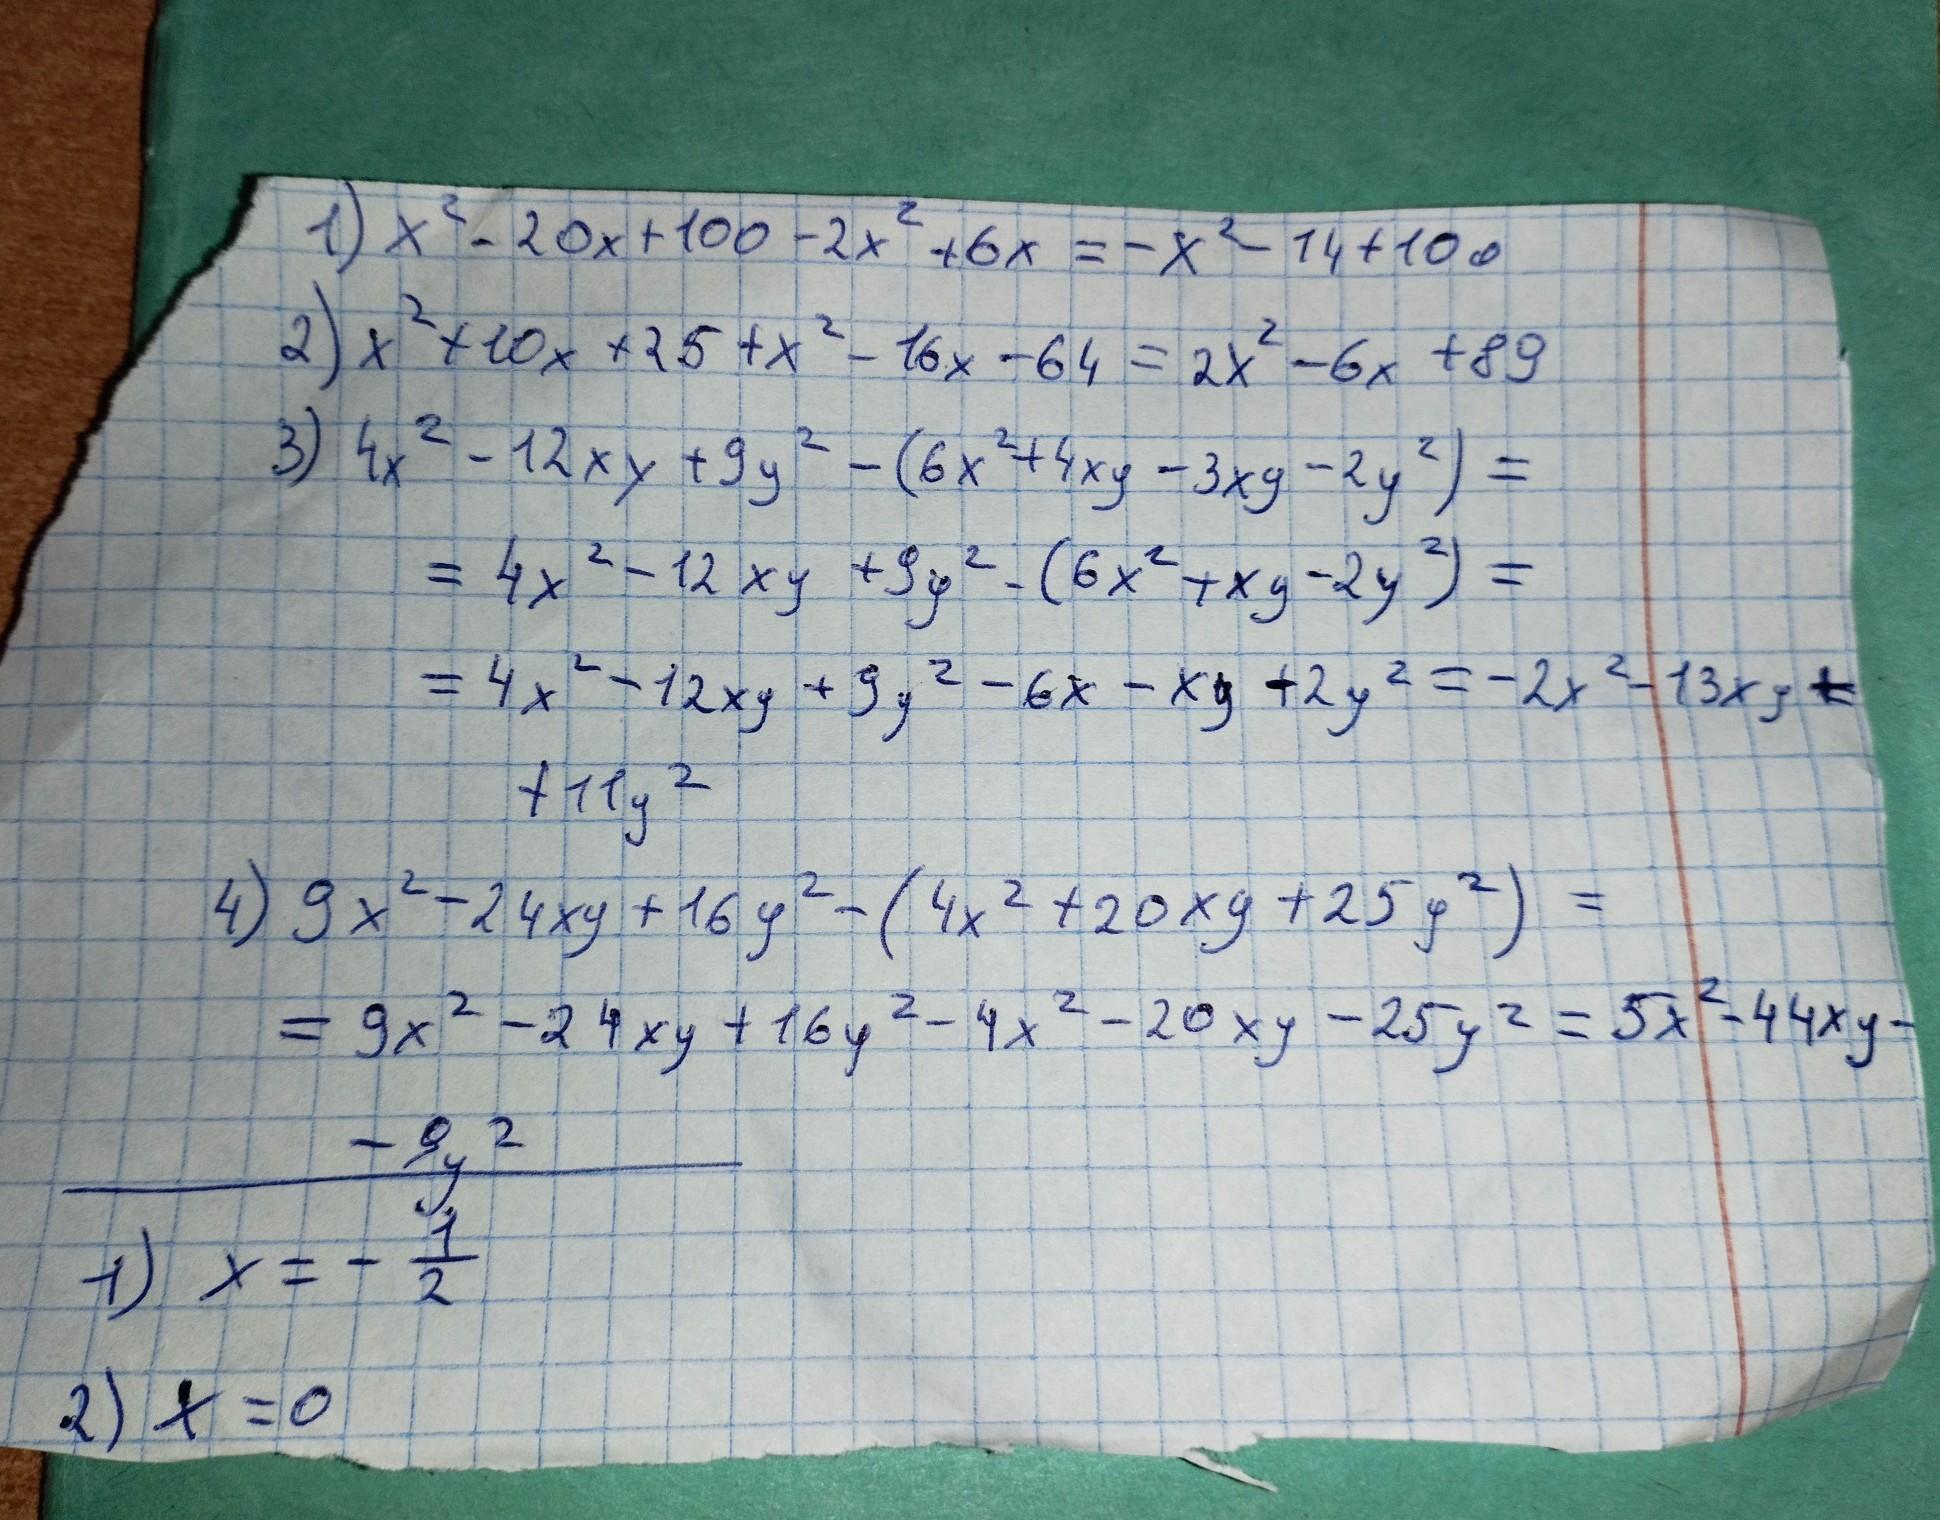 1) x² - 20x + 100 - 2x² + 6x = - x² - 14 + 100
2) x² + 10x + 25 + x² - 16x - 64 = 2x² - 6x + 89
3) 4x² - 12xy + 9y² - (6x² + 4xy - 3xy - 2y²) =
= 4x² - 12xy + 9y² - (6x² + xy - 2y²) =
= 4x² - 12xy + 9y² - 6x - xy + 2y² = -2x² - 13xy +
+ 11y²
4) 9x² - 24xy + 16y² - (4x² + 20xy + 25y²) =
= 9x² - 24xy + 16y² - 4x² - 20xy - 25y² = 5x² - 44xy -
- 9y²
1) x = - 1/2
2) x = 0